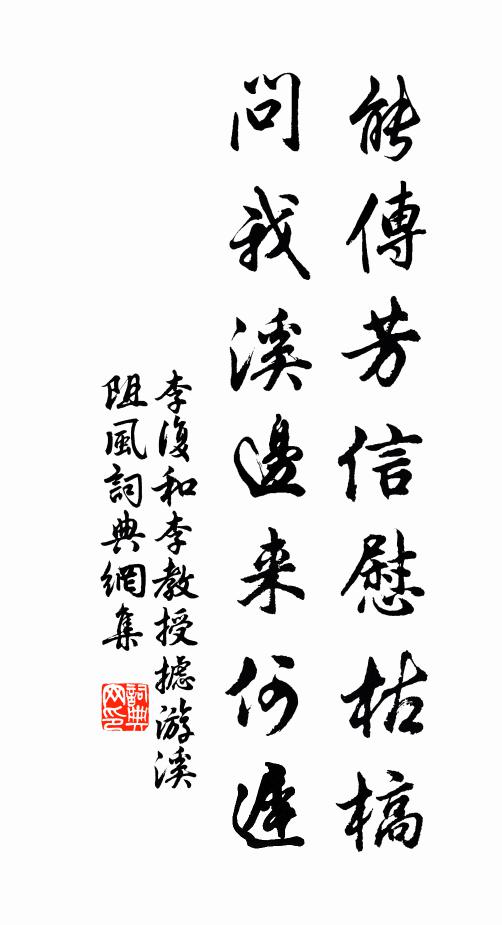 能傳芳信慰枯槁
問我溪邊来何遲
李復和李教授摅游溪
阻風詞典網集
詞典網印